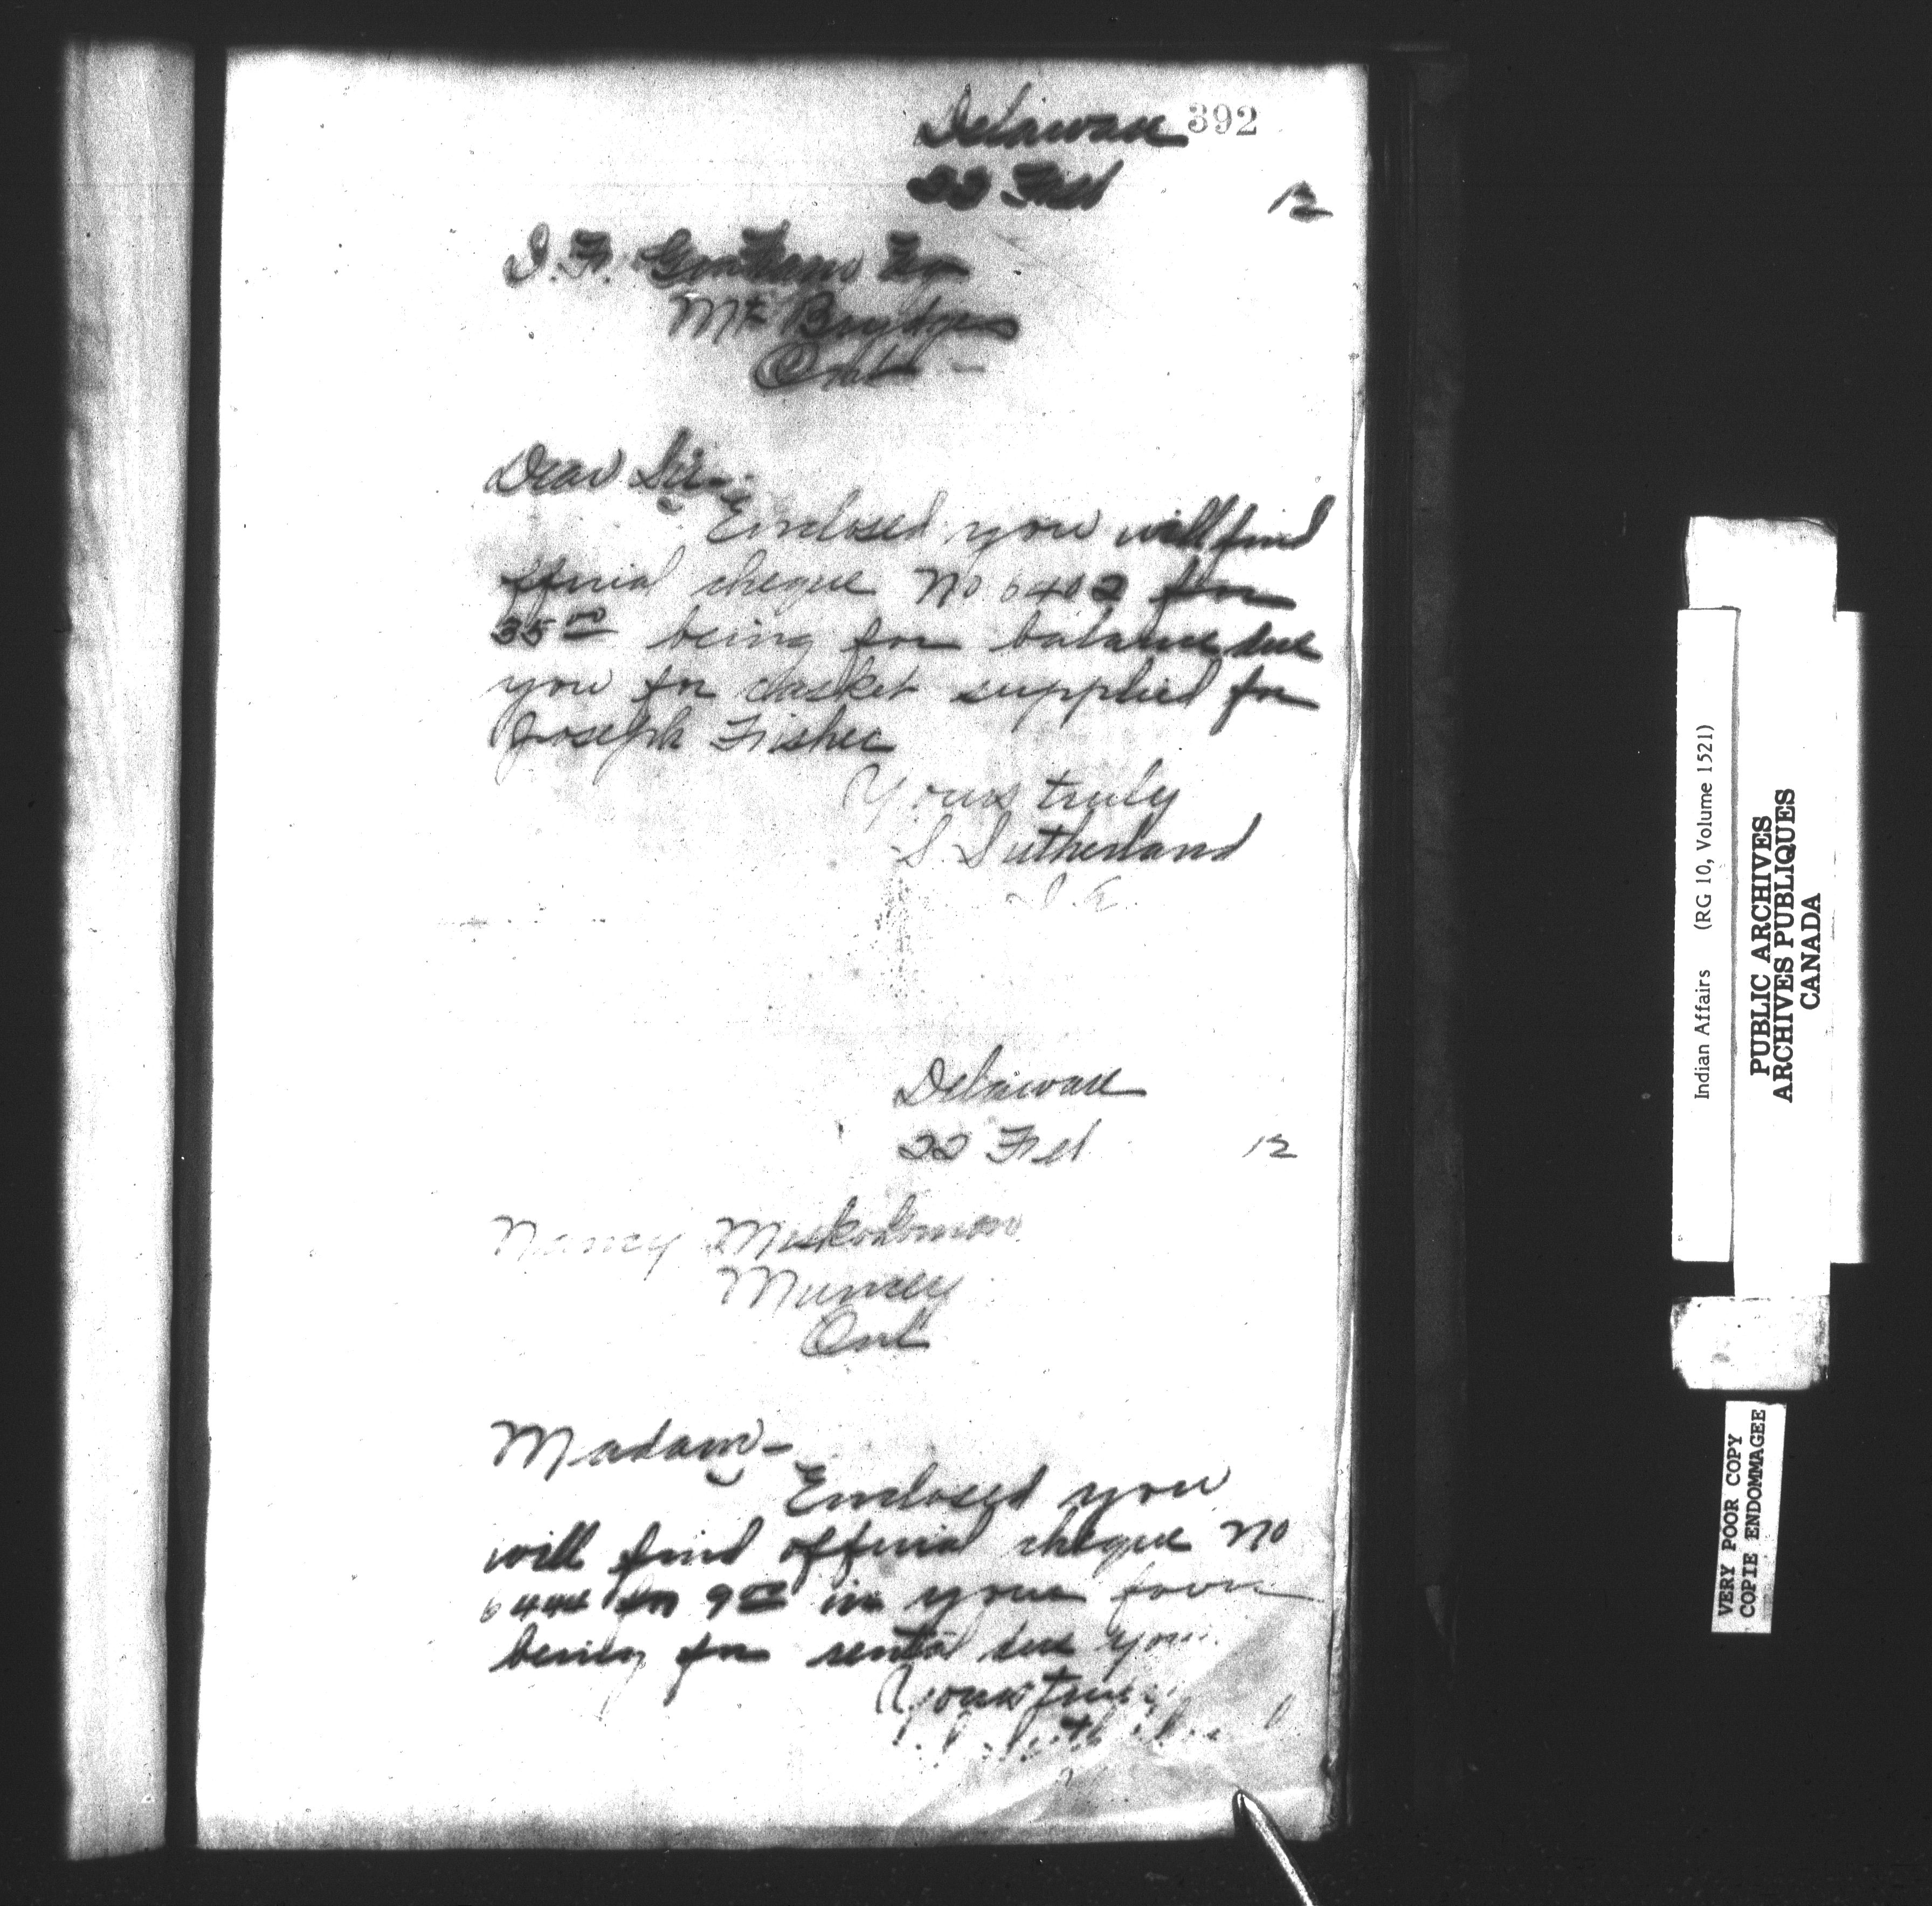 392
Delaware
22 Feb 12
Mt Brydges
Ont
Dear Sir:-
Enclosed you will find
official cheque No 6402 for
35 00 being for balance due
you for casket supplied for
Joseph Fisher
Yours truly
S. Sutherland
I. A.
Delaware
22 Feb 12
Nancy
Muncey
Ont
Madam-
Enclosed you
will find official cheque No
for 9 00 in your favor
being for rental due you
Yours truly
S. Sutherland
Indian Affairs (RG 10, Volume 1521)
PUBLIC ARCHIVES
ARCHIVES PUBLIQUES
CANADA
VERY POOR COPY
COPIE ENDOMMAGEE